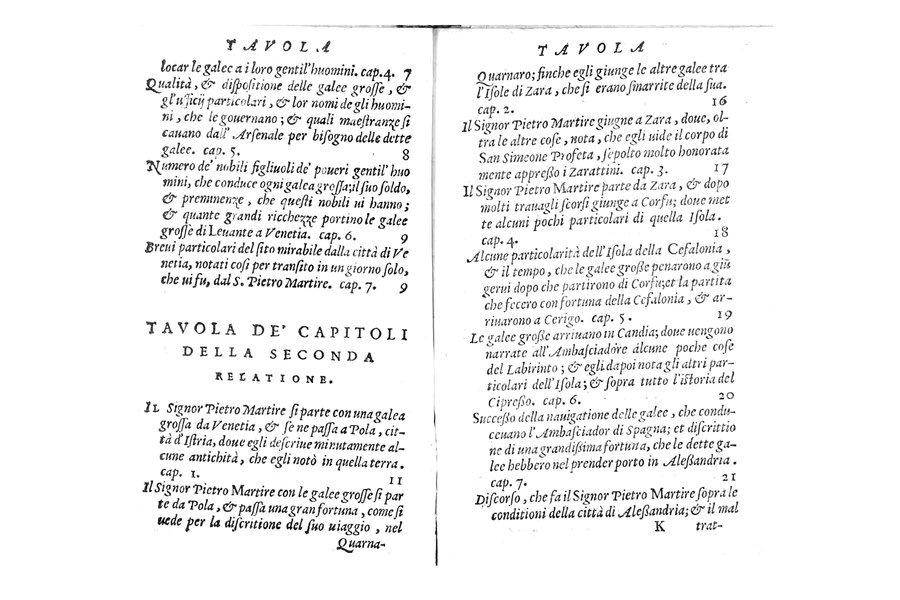 TAVOLA
locar le galee a i loro gentil'huomini. cap. 4. 7
Qualità, & dispositione delle galee grosse, &
gl'ufficij particolari, & lor nomi de gli huomi-
ni, che le gouernano; & quali maestranze si
cauano dall' Arsenale per bisogno delle dette
galee. cap. 5. 8
Numero de' nobili figliuoli de' poueri gentil' huo
mini, che conduce ogni galea grossa; il suo soldo,
& preminenze, che questi nobili ui hanno;
& quante grandi ricchezze portino le galee
grosse di Leuante a Venetia. cap. 6. 9
Breui particolari del sito mirabile dalla città di Ve
netia, notati così per transito in un giorno solo,
che ui fu, dal S. Pietro Martire. cap. 7. 9
TAVOLA DE' CAPITOLI
DELLA SECONDA
RELATIONE.
IL Signor Pietro Martire si parte con una galea
grossa da Venetia, & se ne passa a Pola, cit-
tà d'Istria, doue egli descriue minutamente al-
cune antichità, che egli notò in quella terra.
cap. 1. 11
Il Signor Pietro Martire con le galee grosse si par
te da Pola, & passa una gran fortuna, come si
uede per la discritione del suo uiaggio, nel
Quarna-
TAVOLA
Quarnaro; finche egli giunge le altre galee tra
l'Isole di Zara, che si erano smarrite della sua.
cap. 2. 16
Il Signor Pietro Martire giugne a Zara, doue, ol-
tra le altre cose, nota, che egli uide il corpo di
San Simeone Profeta, sepolto molto honorata
mente appresso i Zarattini. cap. 3. 17
Il Signor Pietro Martire parte da Zara, & dopo
molti trauagli scorsi giunge a Corfu; doue met
te alcuni pochi particolari di quella Isola.
cap. 4. 18
Alcune particolarità dell'Isola della Cefalonia,
& il tempo, che le galee grosse penarono a giu
gerui dopo che partirono di Corfu; et la partita
che fecero con fortuna della Cefalonia, & ar-
riuarono a Cerigo. cap. 5. 19
Le galee grosse arriuano in Candia; doue uengono
narrate all'Ambasciadore alcune poche cose
del Labirinto; & egli dapoi nota gli altri par-
ticolari dell'Isola; & sopra tutto l'istoria del
Cipresso. cap. 6. 20
Successo della nauigatione delle galee, che condu-
ceuano l'Ambasciador di Spagna; et discrittio
ne di una grandissima fortuna, che le dette ga-
lee hebbero nel prender porto in Alessandria.
cap. 7. 21
Discorso, che fa il Signor Pietro Martire sopra le
conditioni della città di Alessandria; & il mal
K trat-